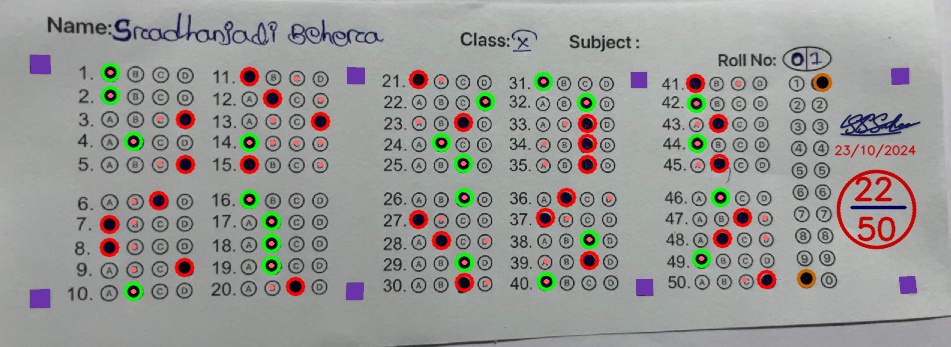 Name: Sradhanjali Behera
Class: X Subject :
Roll No: 01
1. A B C D
2. A B C D
3. A B C D
4. A B C D
5. A B C D
6. A B C D
7. A B C D
8. A B C D
9. A B C D
10. A B C D
11. A B C D
12. A B C D
13. A B C D
14. A B C D
15. A B C D
16. A B C D
17. A B C D
18. A B C D
19. A B C D
20. A B C D
21. A B C D
22. A B C D
23. A B C D
24. A B C D
25. A B C D
26. A B C D
27. A B C D
28. A B C D
29. A B C D
30. A B C D
31. A B C D
32. A B C D
33. A B C D
34. A B C D
35. A B C D
36. A B C D
37. A B C D
38. A B C D
39. A B C D
40. A B C D
41. A B C D
42. A B C D
43. A B C D
44. A B C D
45. A B C D
46. A B C D
47. A B C D
48. A B C D
49. A B C D
50. A B C D
1
2 2
3 3
4 4
5 5
6 6
7 7
8 8
9 9
0
23/10/2024
22
50